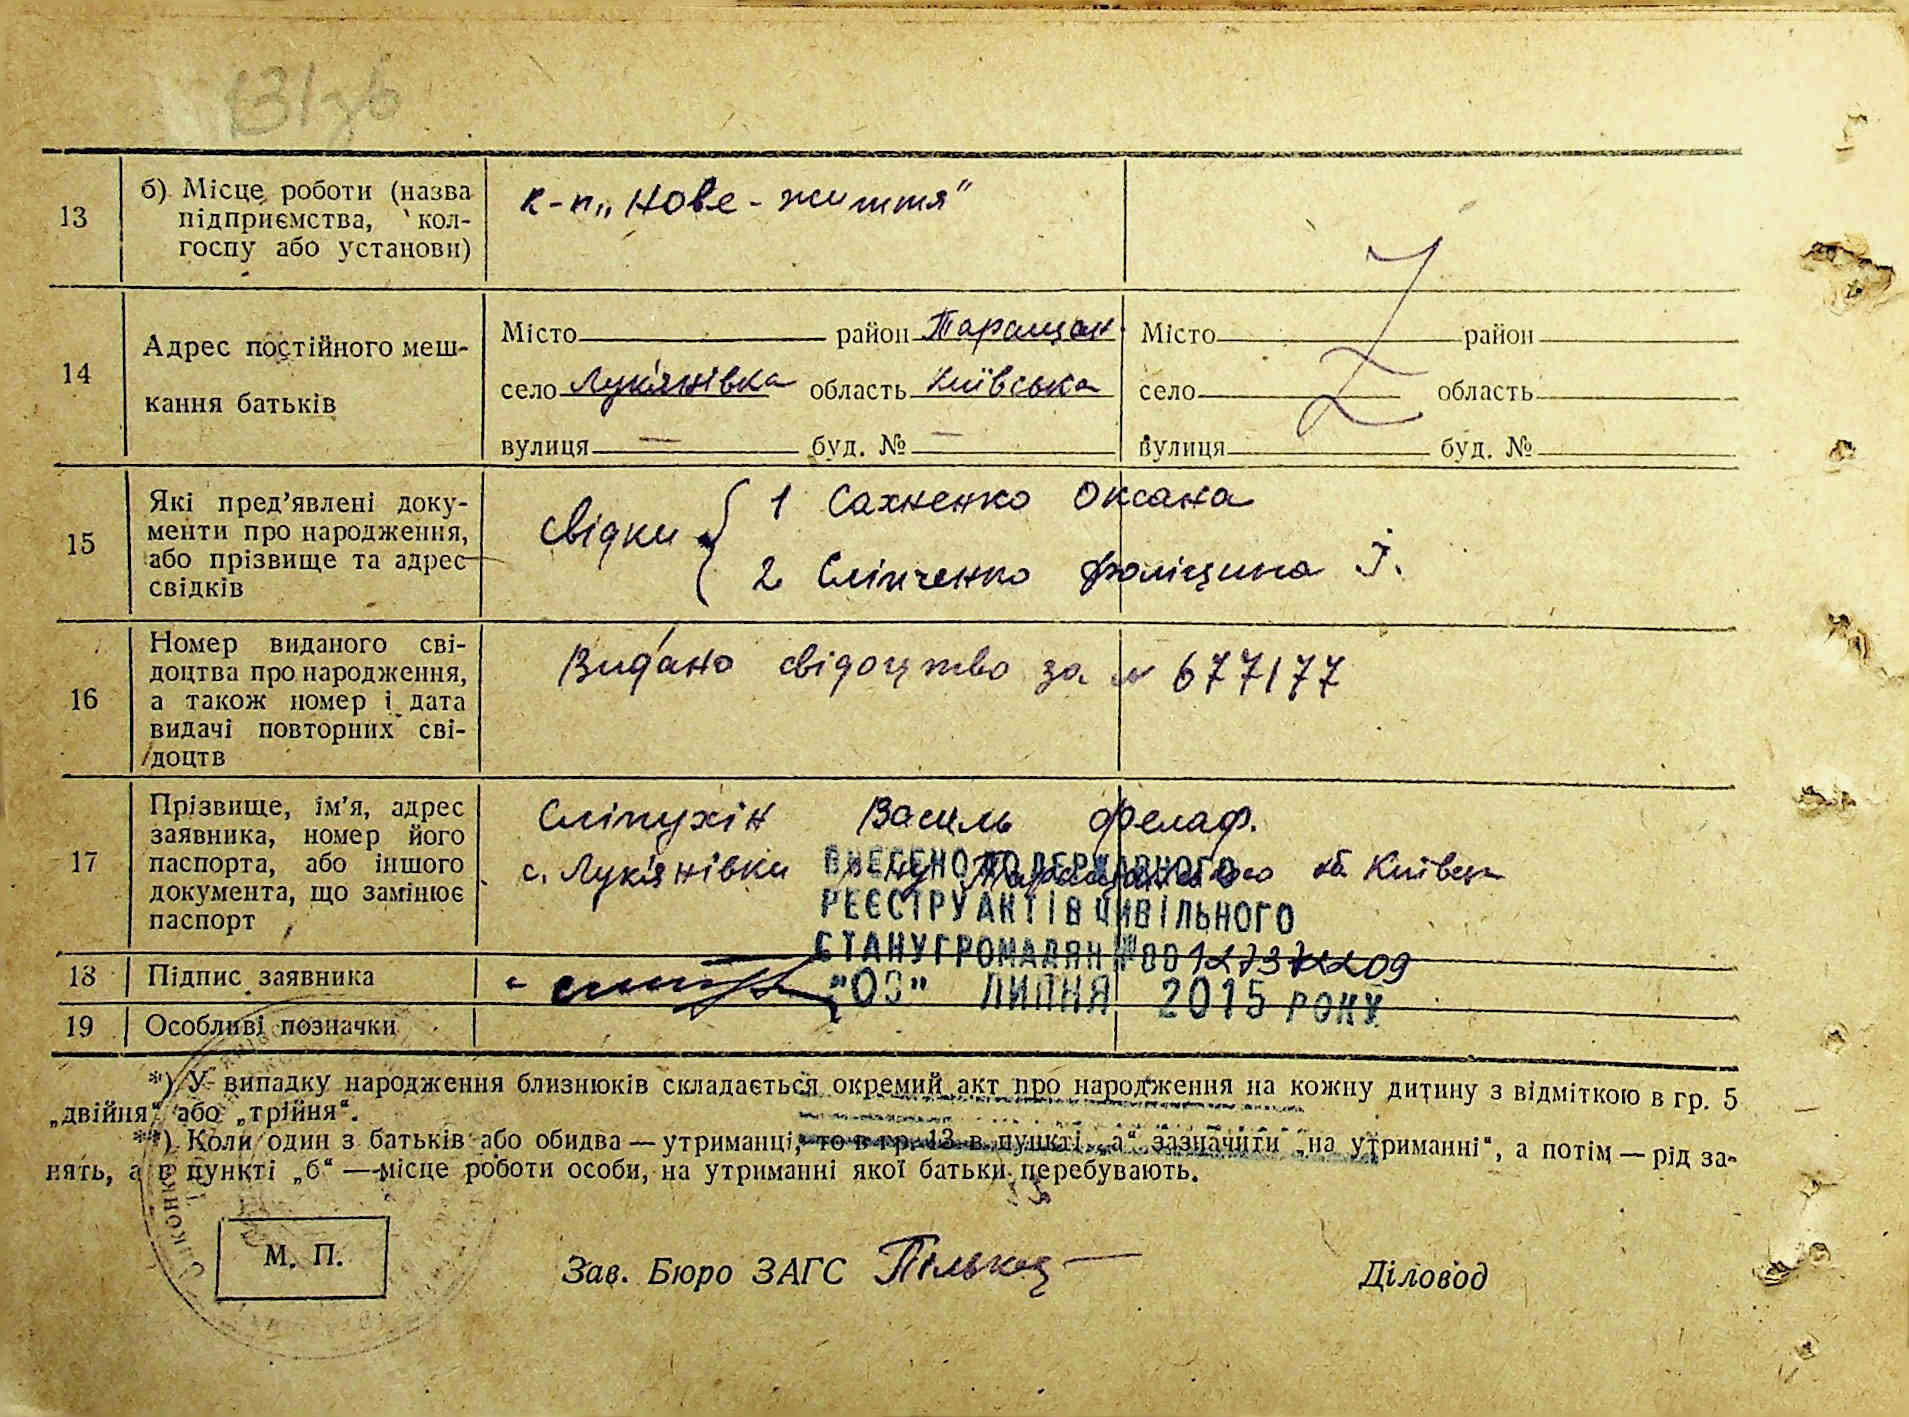 131зв
13
б) Місце роботи (назва
підприємства, кол-
госпу або установи)
к-п „Нове-життя“
14
Адрес постійного меш-
кання батьків
Місто район Таращан.
село Лук'янівка область Київська
вулиця — буд. № —
Місто район
село область
вулиця буд. №
15
Які пред’явлені доку-
менти про народження,
або прізвище та адрес
свідків
Свідки
1 Сахненко Оксана
2 Сліпченко І.
16
Номер виданого сві-
доцтва про народження,
а також номер і дата
видачі повторних сві-
доцтв
Видано свідоцтво за № 677177
17
Прізвище, ім’я, адрес
заявника, номер його
паспорта, або іншого
документа, що замінює
паспорт
Сліпухін Василь
с. Лук'янівки
ВНЕСЕНО ДО ДЕРЖАВНОГО
РЕЄСТРУ АКТІВ ЦИВІЛЬНОГО
СТАНУ ГРОМАДЯН №
"03" ЛИПНЯ 2015 РОКУ
18
Підпис заявника
19
Особливі позначки
*) У випадку народження близнюків складається окремий акт про народження на кожну дитину з відміткою в гр. 5
„двійня“ або „трійня“.
**) Коли один з батьків або обидва — утриманці, то в гр. 13 в пункті „а“ зазначити „на утриманні“, а потім — рід за-
нять, а в пункті „б“ — місце роботи особи, на утриманні якої батьки перебувають.
М. П.
Зав. Бюро ЗАГС
Діловод